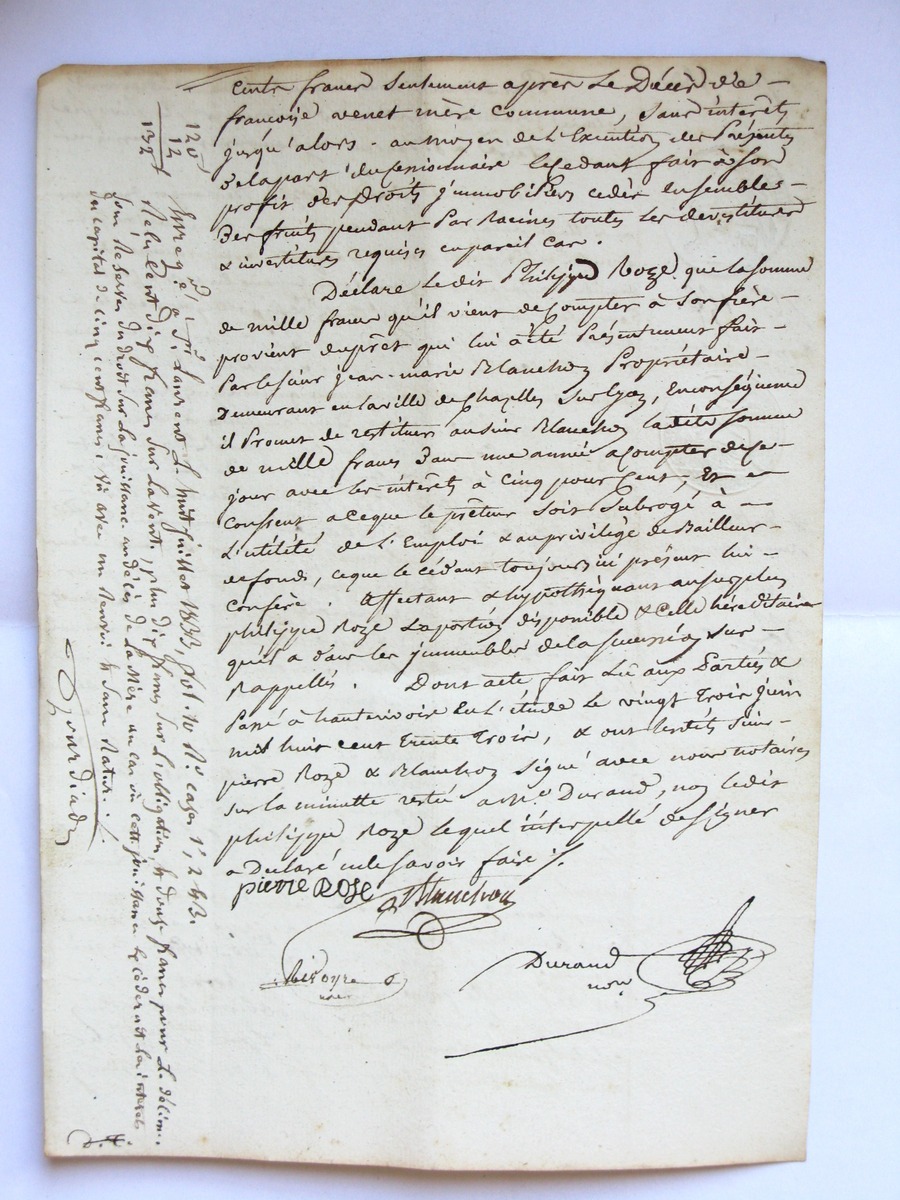 cents francs seulement après le Décès de
françoise venet mère commune, sans intérêts
jusqu'alors. au moyen de l'Exécution des Présentes
de la part du cessionnaire le cédant fait à son
profit des Droits immobiliers cédés ensembles
des fruits pendant par Racines toutes les devestitures
& investitures requises en pareil cas.
Déclare le dit Philippe Roze que la somme
de mille francs qu'il vient de Compter à son frère
provient du prêt qui lui a été Présentement fait
Par le sieur jean-marie Blanchon Propriétaire
Demeurant en la ville de Chazelles sur Lyon, En conséquence
il Promet de restituer au sieur Blanchon la dite somme
de mille francs dans une année à compter de ce
jour avec les intérêts à Cinq pour Cent, Et
Consent à ce que le prêteur soit Subrogé à
L'utilité de L'Emploi & au privilège de Bailleur
de fonds, ce que le cédant toujours ici présent lui
Confère. Affectant & hypothéquant au surplus
philippe Roze la portion disponible & celle héréditaire
qu'il a dans les immeubles de la succession sus
Rappellés. Dont acte fait Lû aux Parties &
Passé à hauterivoire En L'étude le vingt Trois juin
mil huit cent trente Trois, & ont lesdits sieurs
pierre Roze & Blanchon signé avec nous notaires
sur la minutte restée à Me. Durand, non le dit
philippe Roze lequel interpellé de signer
a Déclaré ne le savoir faire ./.
pierre ROSE Blanchon
Durand
nore
120
12
132
Enregé. à St. Laurent L. huit juillet 1833, vol. 10 No. cases 1, 2 & 3.
Reçu cent dix francs sur la vente, plus dix francs sur l'obligation & douze francs pour le décime.
sous Réserve du droit sur la jouissance au décès de la Mère au cas où cette jouissance
un capital de cinq cent francs,
Gourdiad